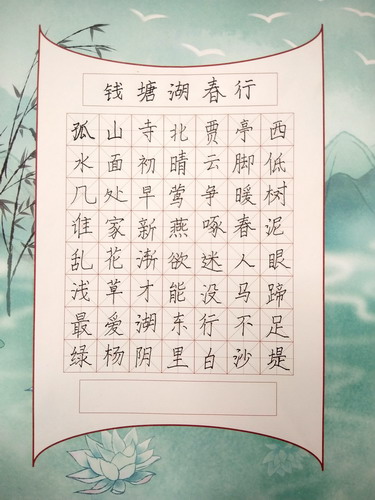 钱塘湖春行
孤山寺北贾亭西
水面初晴云脚低
几处早莺争暖树
谁家新燕啄春泥
乱花渐欲迷人眼
浅草才能没马蹄
最爱湖东行不足
绿杨阴里白沙堤